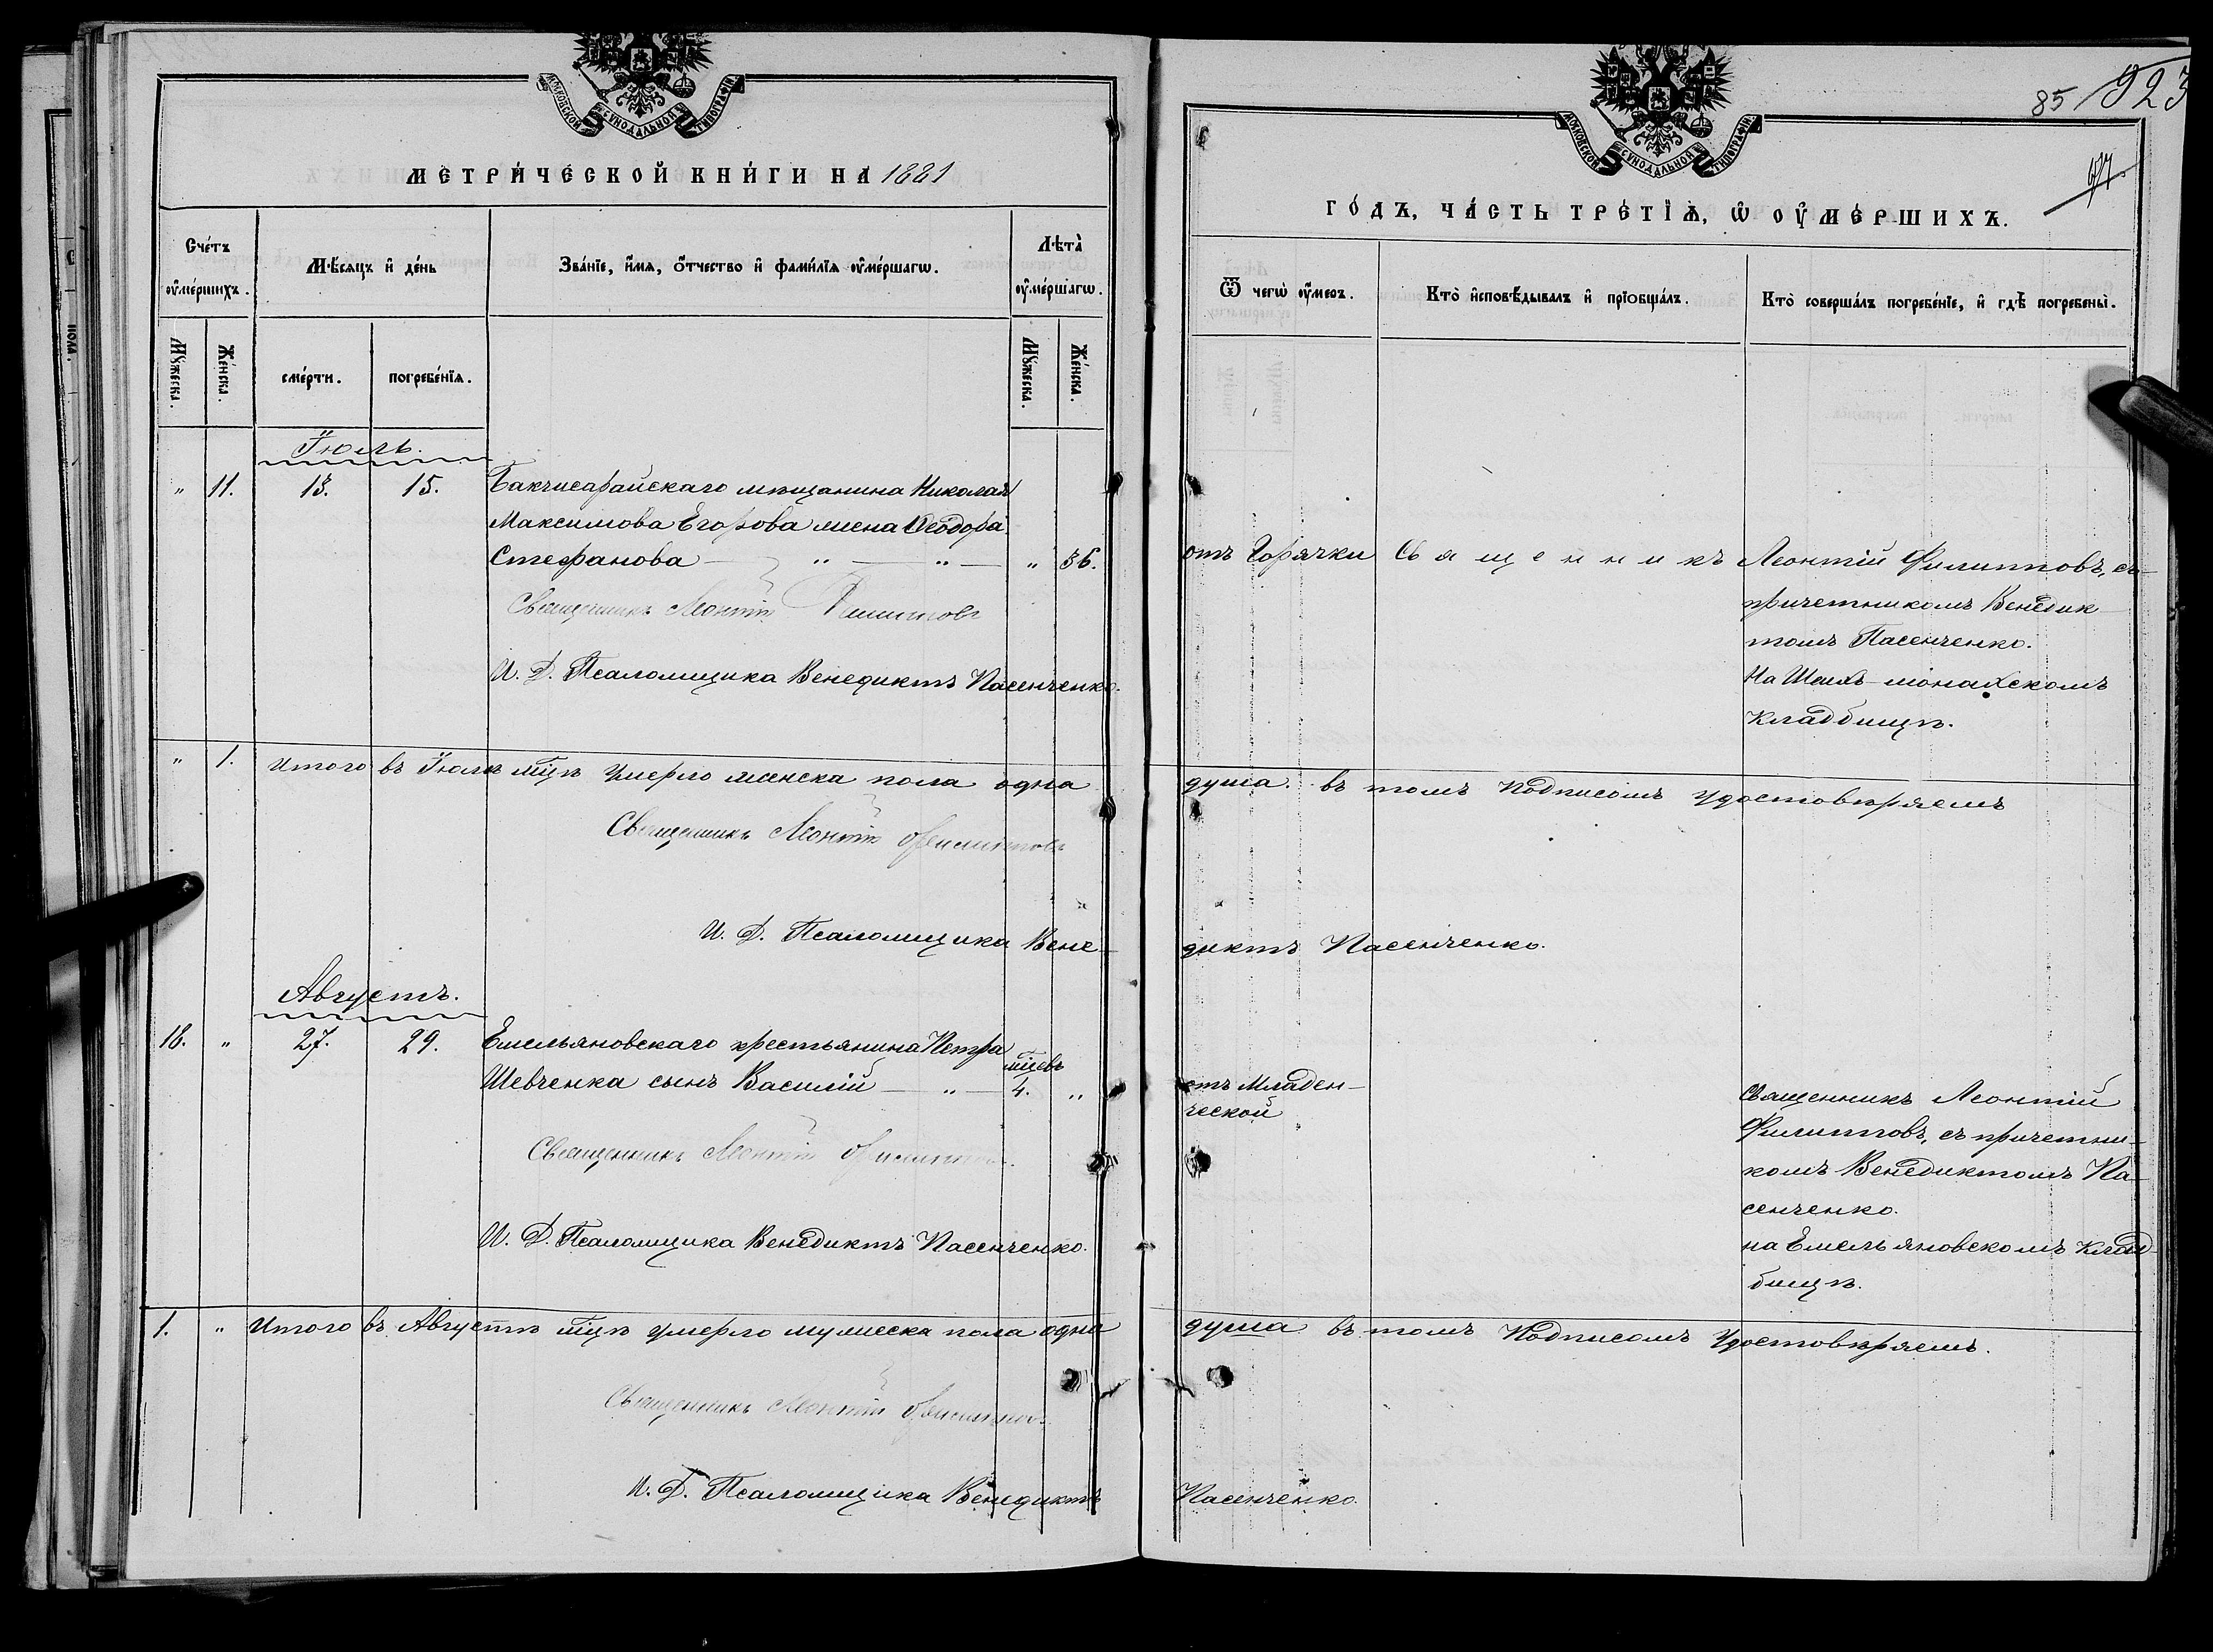 МОСКОВСКОЙ СѴНОДАЛЬНОЙ ТИПОГРАФІИ
МЕТРИ́ЧЕСКОЙ КНИ́ГИ НА 1881
Сче́тъ ᲂу҆ме́ршихъ.
Мѣ́сяцъ и҆ де́нь
Зва́нїе, и҆́мя, ѻ҆́тчество и҆ фами́лїя ᲂу҆ме́ршагѡ.
Лѣта̀ ᲂу҆ме́ршагѡ.
Мꙋ́жеска.
Же́нска.
сме́рти.
погребе́нїѧ.
Мꙋ́жеска.
Же́нска.
Іюль.
" 11. 13. 15. Бакчисарайскаго мѣщанина Николая
Максимова Егорова жена Ѳеодора
Стефанова — " — " — " 36.
Священникъ Леонтій Филипповъ
И. Д. Псаломщика Венедиктъ Пасенченко.
" 1. Итого въ Іюлѣ мцѣ умерло женска пола одна
Священникъ Леонтій Филипповъ
И. Д. Псаломщика Вене-
Августъ.
18. " 27. 29. Емельяновскаго крестьянина Петра
мцевъ
Шевченка сынъ Василій — " — 4. "
Священникъ Леонтій Филипповъ
И. Д. Псаломщика Венедиктъ Пасенченко.
1. " Итого въ Августѣ мцѣ умерло мужеска пола одна
Священникъ Леонтій Филипповъ
И. Д. Псаломщика Венедиктъ
85 923
МОСКОВСКОЙ СѴНОДАЛЬНОЙ ТИПОГРАФІИ
ГО́ДЪ, ЧА́СТЬ ТРЕ́ТЇѦ, Ѡ҆ ОУ҆МЕ́РШИХЪ.
Ѿ чегѡ̀ ᲂу҆́меръ.
Кто̀ и҆сповѣ́дывалъ и҆ прїобща́лъ.
Кто̀ соверша́лъ погребе́нїе, и҆ гдѣ̀ погребены̀.
отъ Горячки Священникъ Леонтій Филипповъ, съ
причетникомъ Венедик-
томъ Пасенченко.
На Шеихъ-монахскомъ
кладбищѣ.
душа. въ томъ Подписомъ Удостовѣряемъ
диктъ Пасенченко.
отъ Младен-
ческой
Священникъ Леонтій
Филипповъ, съ причетни-
комъ Венедиктомъ Па-
сенченко.
на Емельяновскомъ клад-
бищѣ.
душа въ томъ Подписомъ Удостовѣряемъ.
Пасенченко.